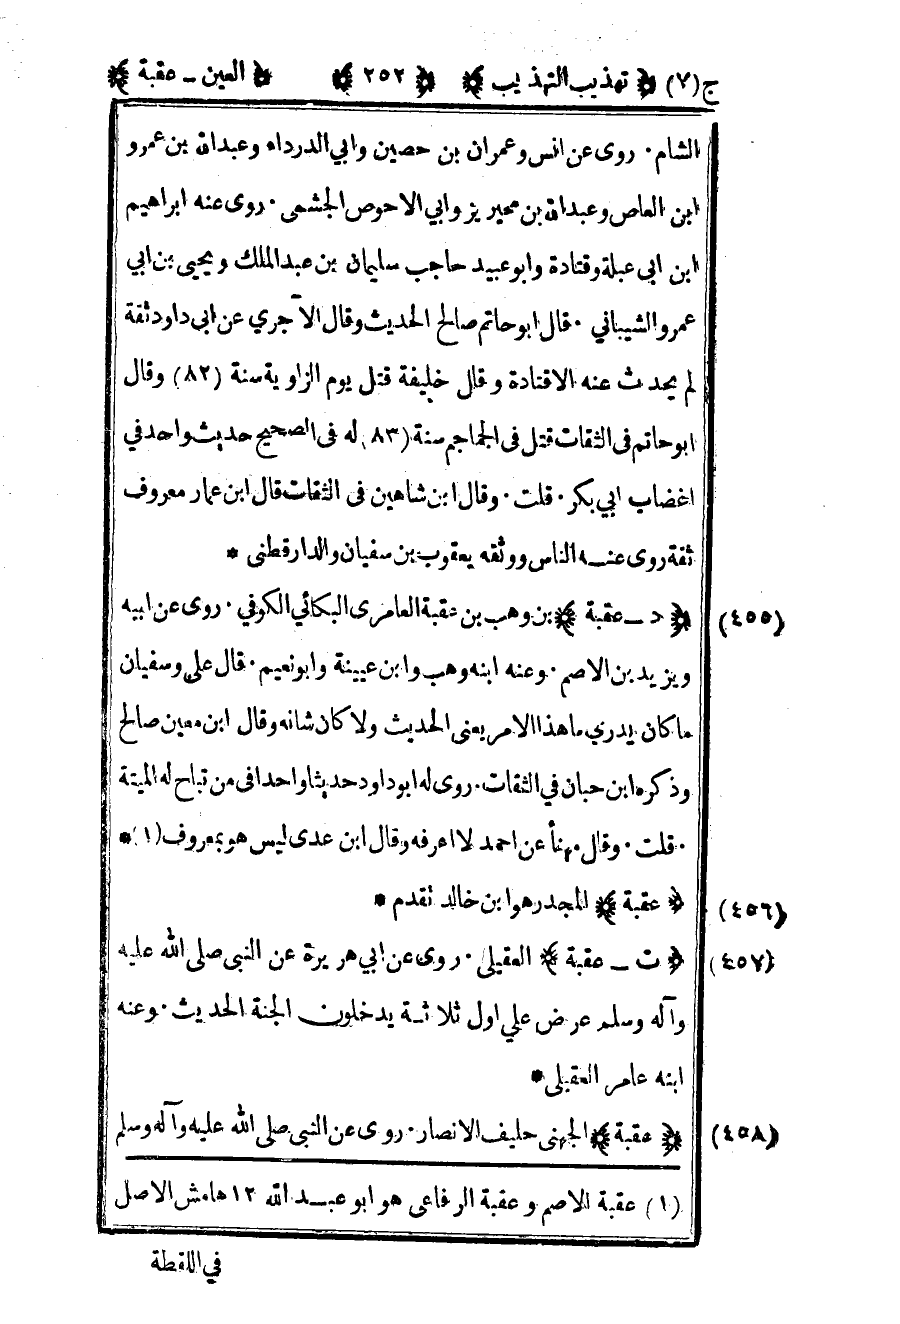 ج(٧) ﴿ تهذيب التهذيب ﴾ ﴿ ٢٥٢ ﴾ ﴿ العين ـ عقبة ﴾
الشام · روى عن انس وعمران بن حصين وابي الدرداء وعبدالله بن عمرو
ابن العاص وعبدالله بن محيريز وابي الاحوص الجشمى · روى عنه ابراهيم
ابن ابى عبلة وقتادة وابوعبيد حاجب سليمان بن عبدالملك ويحيى بن ابي
عمرو الشيباني · قال ابوحاتم صالح الحديث وقال الآجري عن ابى داود ثقة
لم يحدث عنه الاقتادة وقال خليفة قتل يوم الزاوية سنة (٨٢) وقال
ابوحاتم فى الثقات قتل فى الجماجم سنة (٨٣) له فى الصحيح حديث واحد في
اغضاب ابي بكر · قلت · وقال ابن شاهين فى الثقات قال ابن عمار معروف
ثقة روى عنــه الناس ووثقه يعقوب بن سفيان والدارقطنى *
(٤٥٥) ﴿ د ـ عقبة ﴾ بن وهب بن عقبة العامرى البكائي الكوفي · روى عن ابيه
ويزيد بن الاصم · وعنه ابنه وهب وابن عيينة وابونعيم · قال على وسفيان
ماكان يدري ماهذا الامر يعنى الحديث ولا كان شانه وقال ابن معين صالح
وذكره ابن حبان في الثقات · روى له ابوداود حديثا واحدا فى من تباح له الميتة
· قلت · وقال مهنأ عن احمد لا اعرفه وقال ابن عدى ليس هو بمعروف (١) *
(٤٥٦) ﴿ عقبة ﴾ المجدر هو ابن خالد تقدم *
(٤٥٧) ﴿ ت ـ عقبة ﴾ العقيلى · روى عن ابي هريرة عن النبى صلى الله عليه
وآله وسلم عرض علي اول ثلاثــة يدخلون الجنة الحديث · وعنه
ابنه عامر العقيلى *
(٤٥٨) ﴿ عقبة ﴾ الجهنى حليف الانصار · روى عن النبى صلى الله عليه وآله وسلم
(١) عقبة الاصم وعقبة الرفاعى هو ابوعبــد الله ١٢ هامش الاصل
في اللقطة